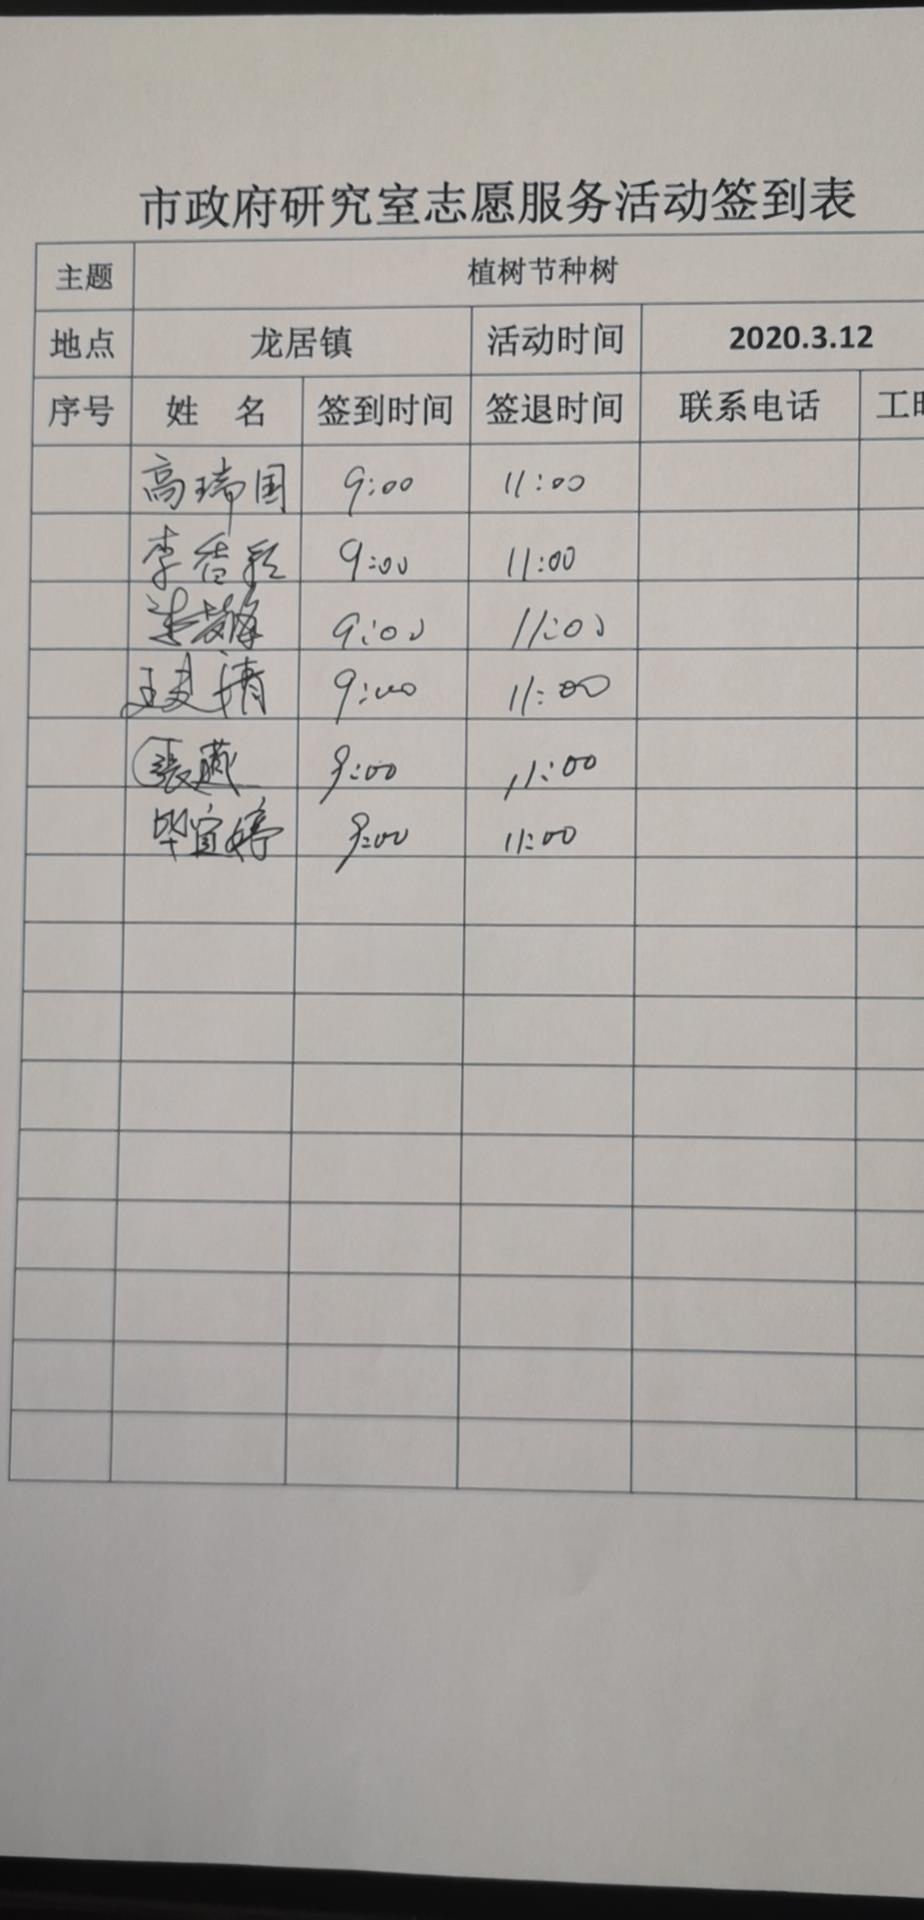 市政府研究室志愿服务活动签到表
主题 植树节种树
地点 龙居镇 活动时间 2020.3.12
序号 姓 名 签到时间 签退时间 联系电话 工时
高瑞国 9:00 11:00
李香 9:00 11:00
9:00 11:00
王 清 9:00 11:00
張燕 9:00 11:00
毕宣婷 9:00 11:00